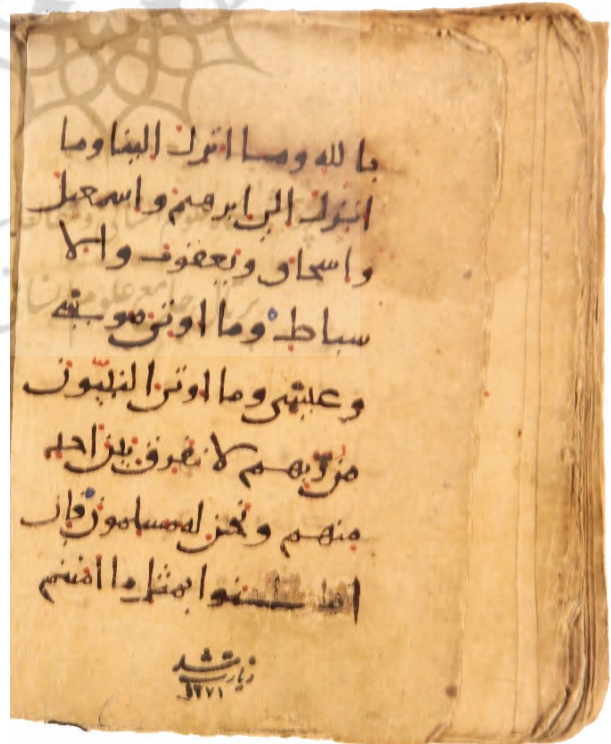 با لله وما انزل الينا وما
انزل الى ابرهيم واسمعيل
واسحاق ويعقوب والا
سباط وما اوتى موسى
وعيسى وما اوتى النبيون
من ربهم لا نفرق بين احد
منهم ونحن له مسلمون فان
امنوا بمثل ما امنتم
زيارت شد
۱۲۷۱